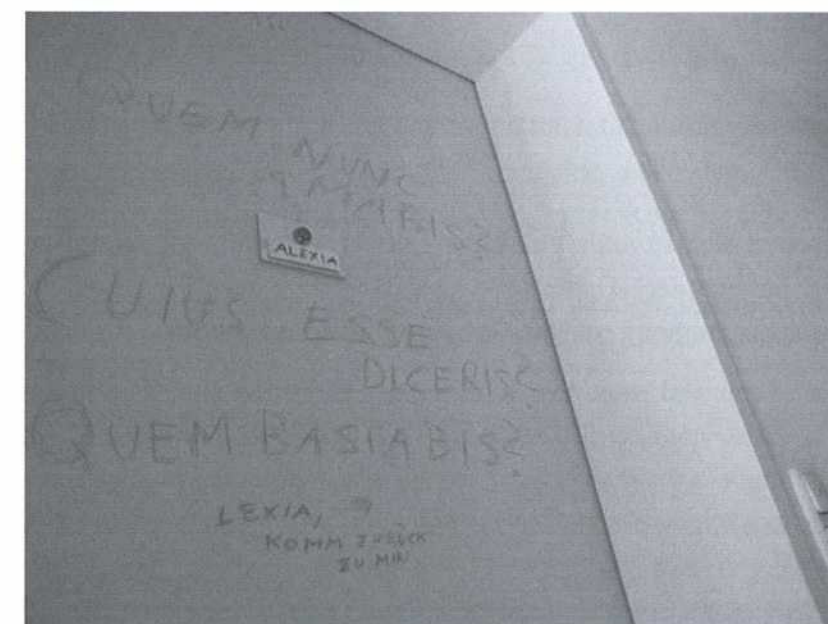 QUEM
NUNC
AMABIS?
ALEXIA
CUIUS ESSE
DICERIS?
QUEM BASIABIS?
LEXIA,
KOMM ZURÜCK
ZU MIR